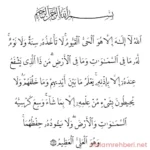 بِسْمِ اللَّهِ الرَّحْمَٰنِ الرَّحِيمِ
اللَّهُ لَا إِلَٰهَ إِلَّا هُوَ الْحَيُّ الْقَيُّومُ لَا تَأْخُذُهُ سِنَةٌ وَلَا نَوْمٌ
لَهُ مَا فِي السَّمَاوَاتِ وَمَا فِي الْأَرْضِ مَنْ ذَا الَّذِي يَشْفَعُ
عِنْدَهُ إِلَّا بِإِذْنِهِ يَعْلَمُ مَا بَيْنَ أَيْدِيهِمْ وَمَا خَلْفَهُمْ وَلَا
يُحِيطُونَ بِشَيْءٍ مِنْ عِلْمِهِ إِلَّا بِمَا شَاءَ وَسِعَ كُرْسِيُّهُ
السَّمَاوَاتِ وَالْأَرْضَ وَلَا يَئُودُهُ حِفْظُهُمَا
وَهُوَ الْعَلِيُّ الْعَظِيمُ